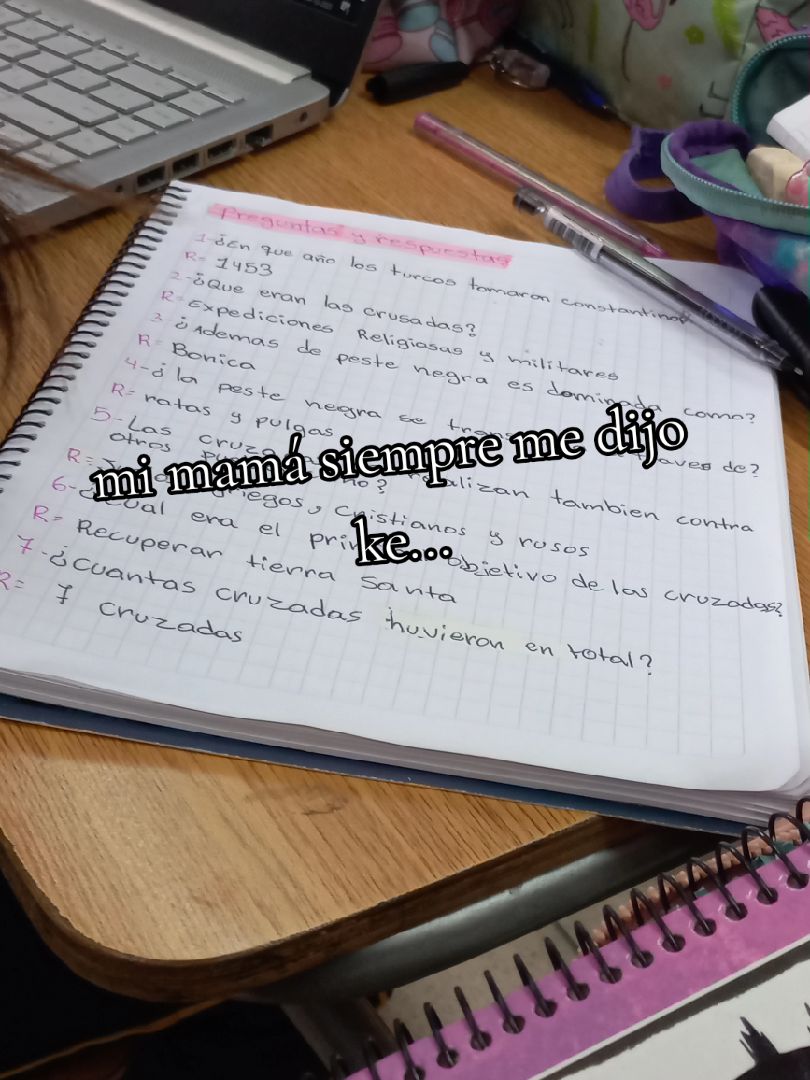 Preguntas y respuestas
1-¿En que año los turcos tomaron constantinop
R= 1453
2-¿Que eran las crusadas?
R= Expediciones Religiasas y militares
3-¿Ademas de peste negra es dominada como?
R= Bonica
4-¿la peste negra se
R= ratas y pulgas
5-Las alizan tambien contra
otros
R= Cristianos y rusos
6- era el objetivo de las cruzadas?
R= Recuperar tierra Santa
7-¿cuantas cruzadas huvieron en total?
R= 7 cruzadas
mi mamá siempre me dijo
ke...